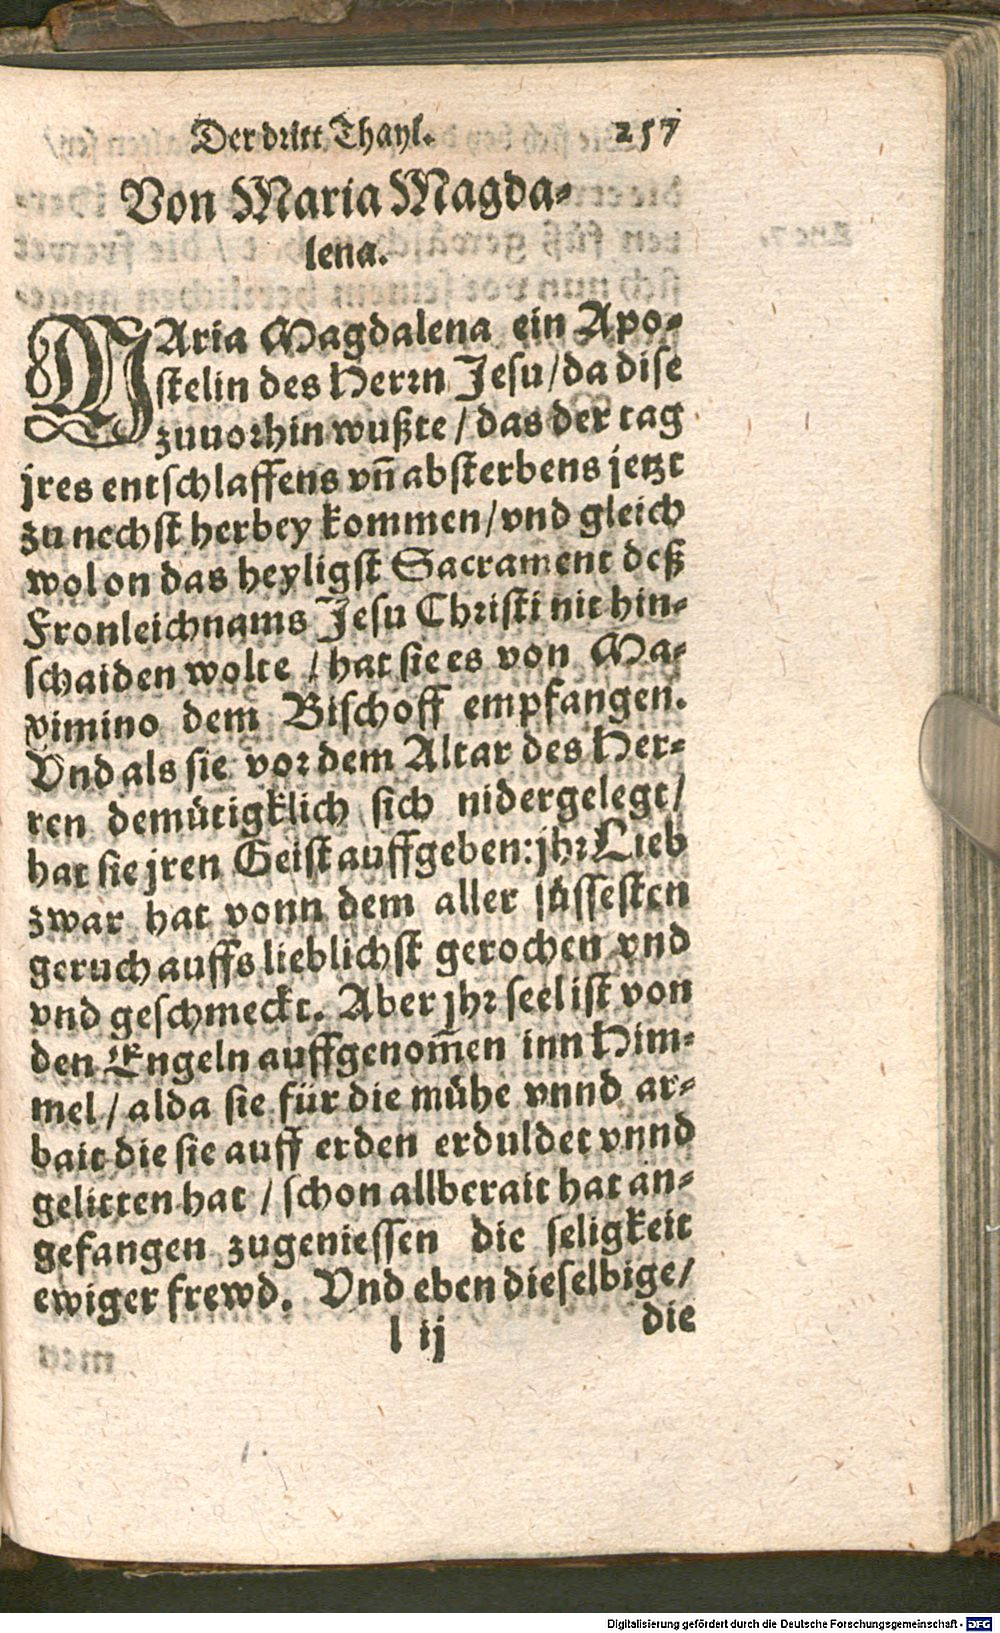 Der dritt Thayl. 257
Von Maria Magda-
lena.
MAria Magdalena ein Apo-
stelin des Herrn Jesu/da dise
zuuorhin wußte / das der tag
jres entschlaffens vn̄ absterbens jetzt
zu nechst herbey kommen/vnd gleich
wol on das heyligst Sacrament deß
Fronleichnams Jesu Christi nit hin-
schaiden wolte / hat sie es von Ma-
ximino dem Bischoff empfangen.
Vnd als sie vor dem Altar des Her-
ren demütigklich sich nidergelegt/
hat sie jren Geist auffgeben:jhr Lieb
zwar hat vonn dem aller süssesten
geruch auffs lieblichst gerochen vnd
vnd geschmeckt. Aber jhr seel ist von
den Engeln auffgenom̄en inn Him-
mel / alda sie für die mühe vnnd ar-
bait die sie auff erden erduldet vnnd
gelitten hat / schon allberait hat an-
gefangen zugeniessen die seligkeit
ewiger frewd. Vnd eben dieselbige/
l ij die
Digitalisierung gefördert durch die Deutsche Forschungsgemeinschaft - DFG